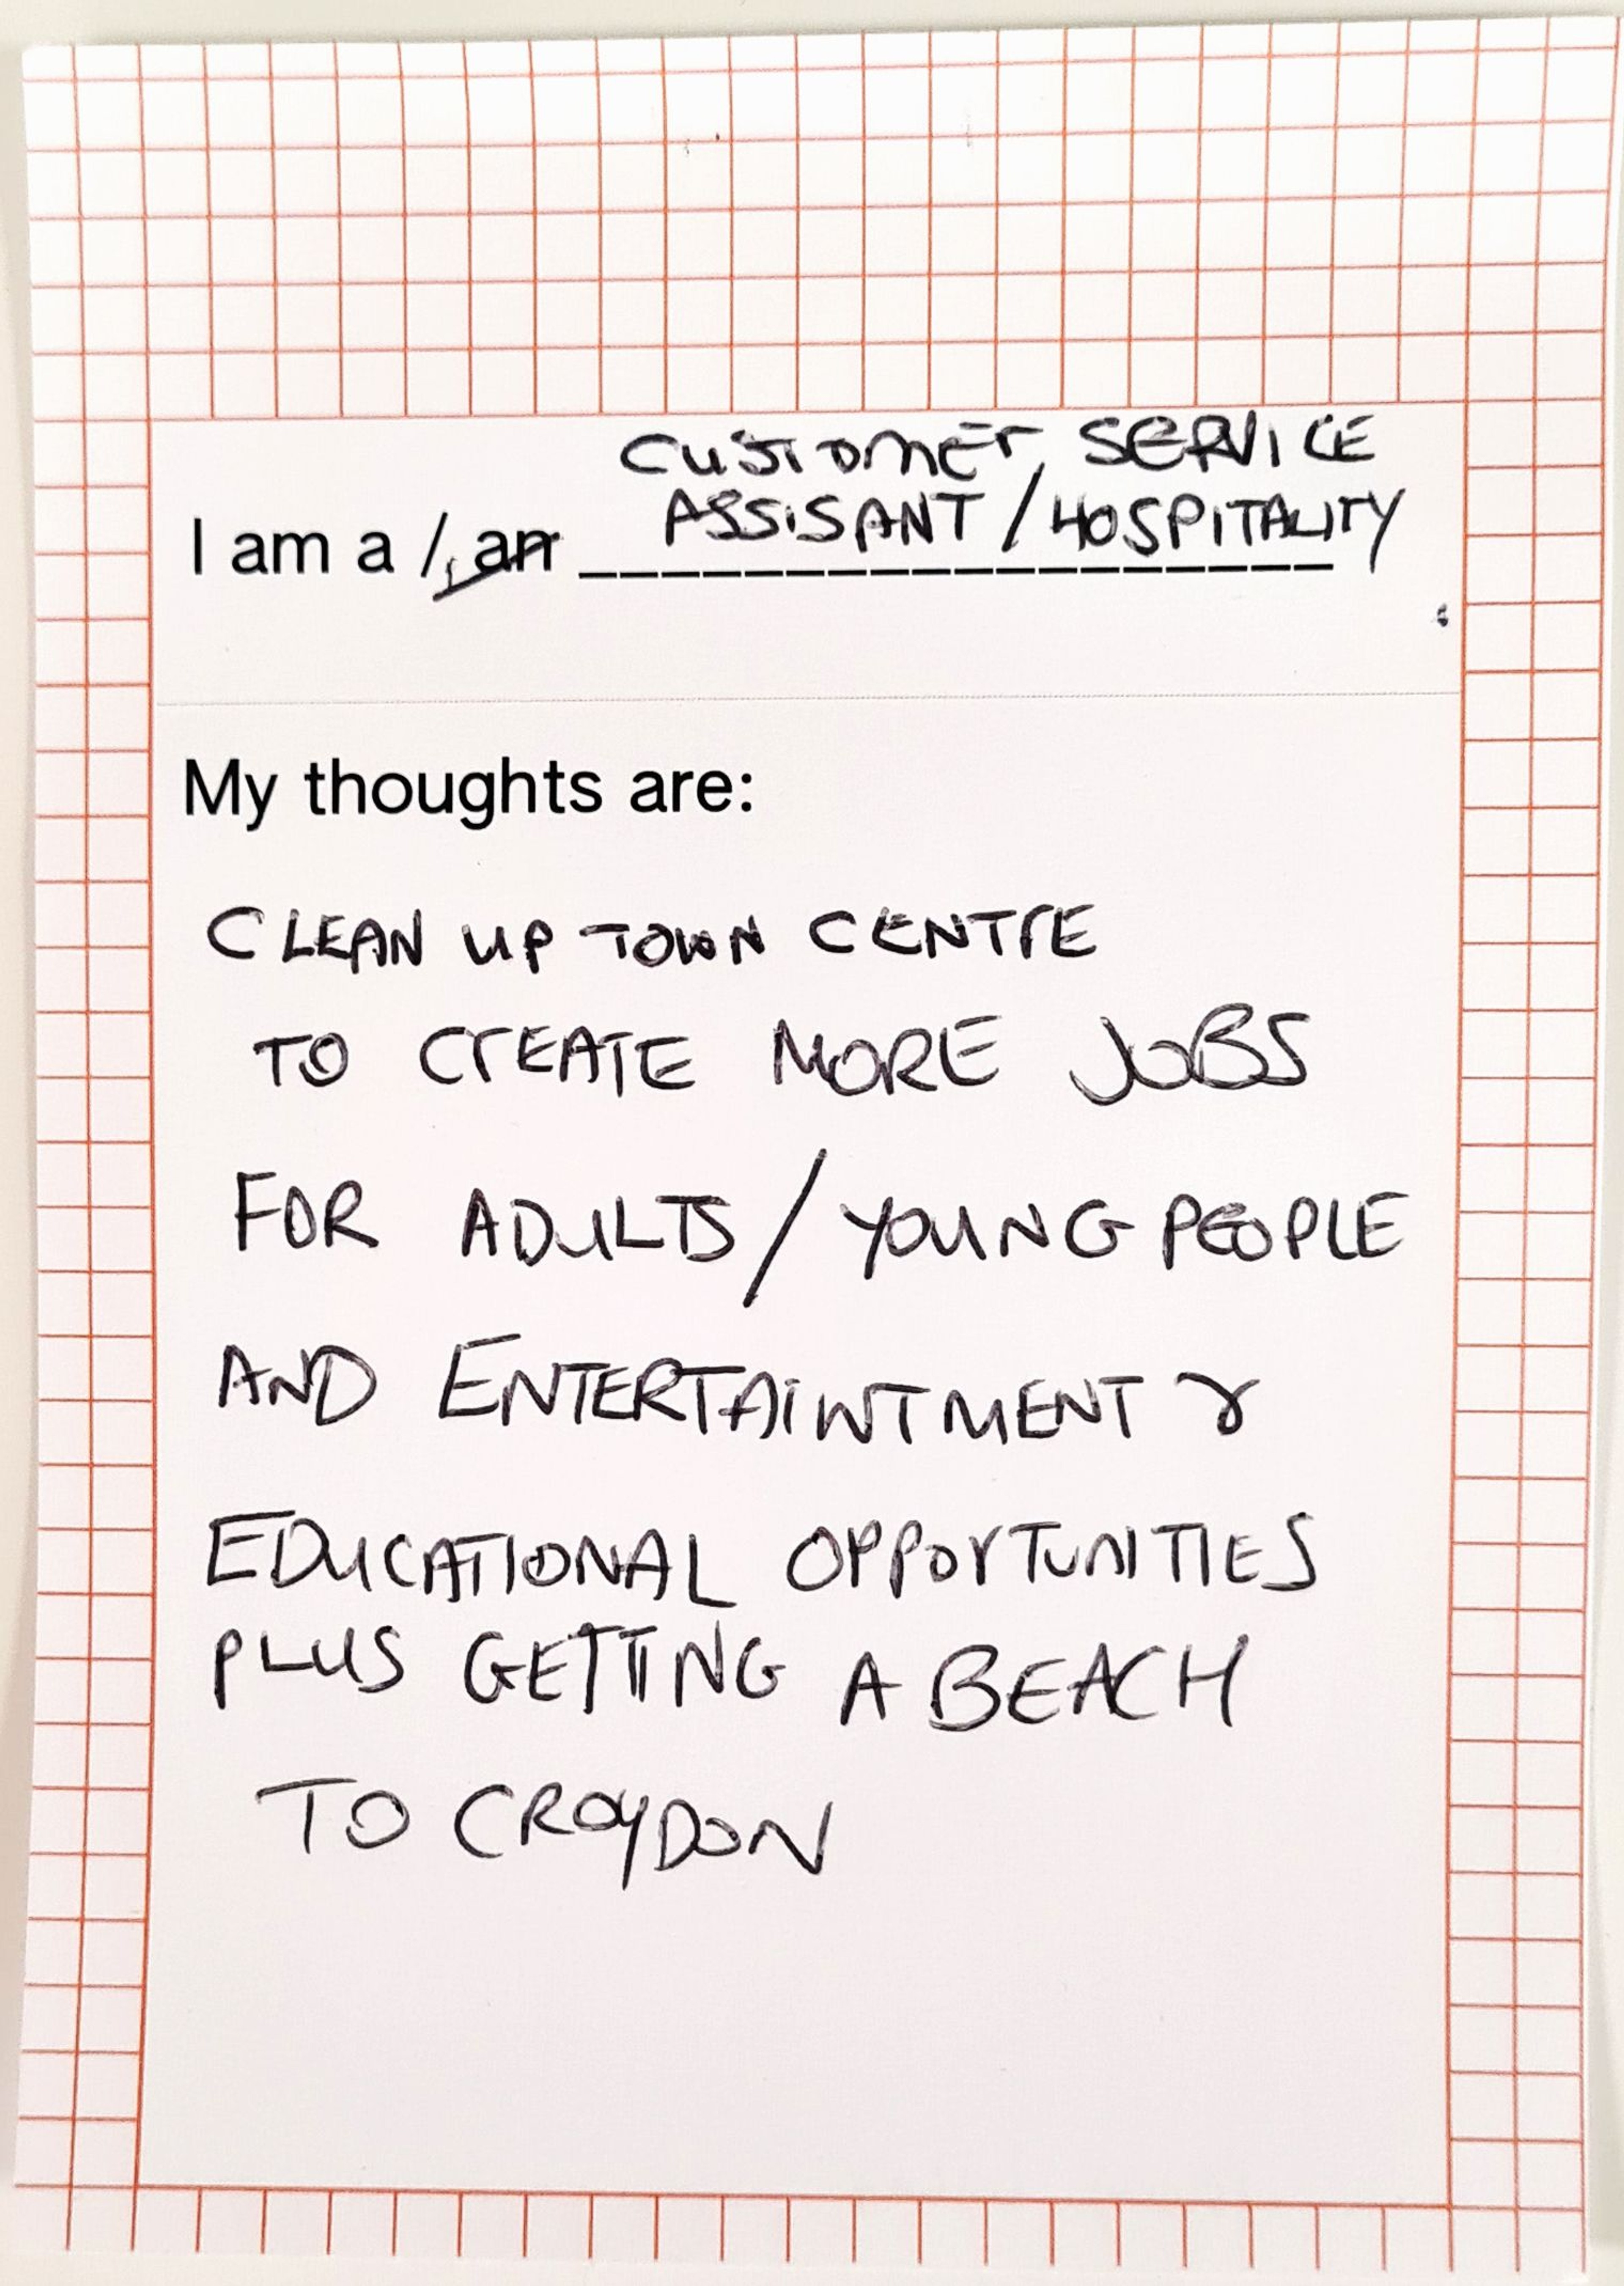 CUSTOMER SERVICE
I am a / an ASSISANT / HOSPITALITY
My thoughts are:
CLEAN UP TOWN CENTRE
TO CREATE MORE JOBS
FOR ADULTS / YOUNG PEOPLE
AND ENTERTAINTMENT &
EDUCATIONAL OPPORTUNITIES
PLUS GETTING A BEACH
TO CROYDON